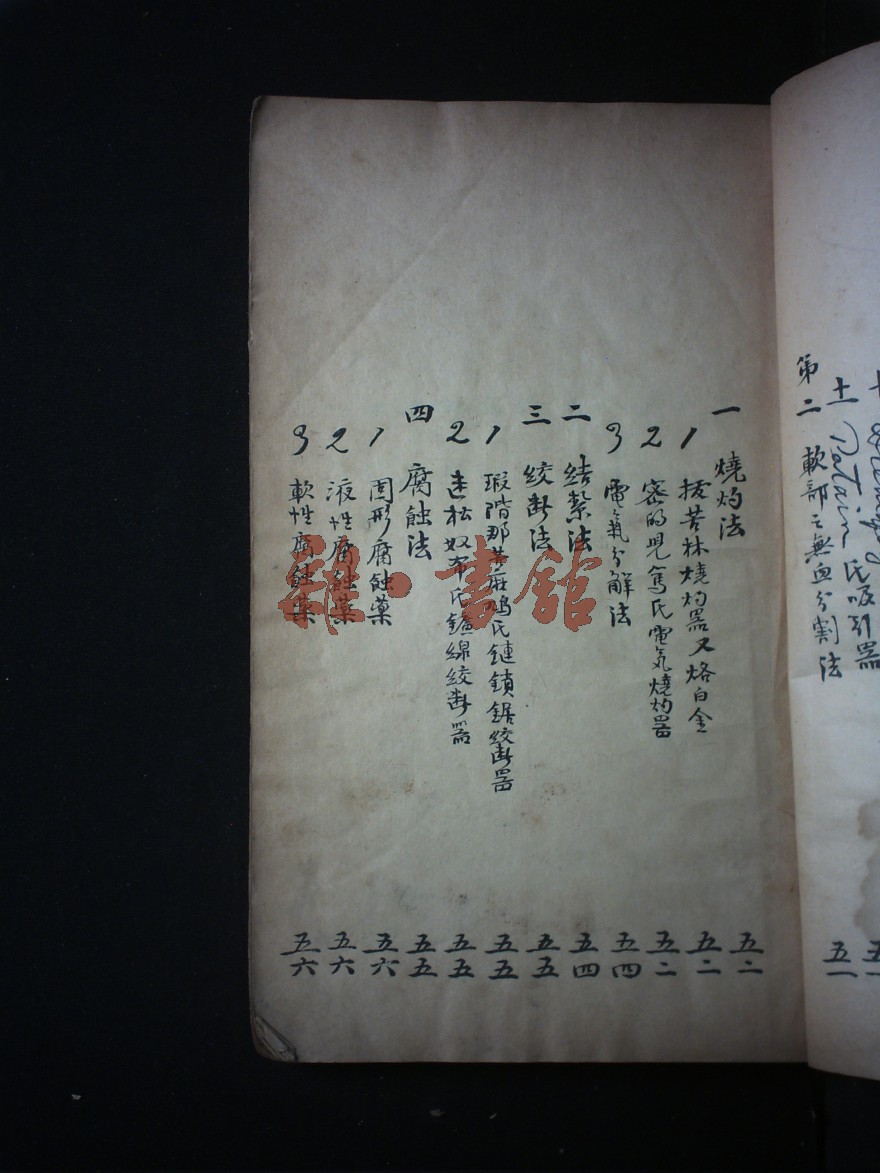 第二 軟部之無血分割法 五一
十一 Potain氏吸引器 五一
一 燒灼法 五二
1 拔苦林燒灼器又烙白金 五二
2 密的兒篤氏電気燒灼器 五二
3 電氣分解法 五四
二 结紮法 五四
三 绞断法 五五
1 瑕階那 氏鏈鎖鋸绞断器 五五
2 松奴 氏 線绞断器 五五
四 腐蝕法 五五
1 固形腐蝕藥 五六
2 液性腐蝕藥 五六
3 軟性腐蝕藥 五六
雜·書舘